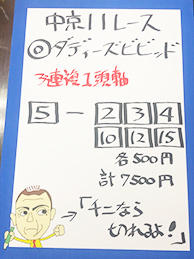 中京11レース
◎ダディーズビビッド
3連複1頭軸
5－2 3 4
10 12 15
各500円
計7500円
→「チニなら
切れるよ!」